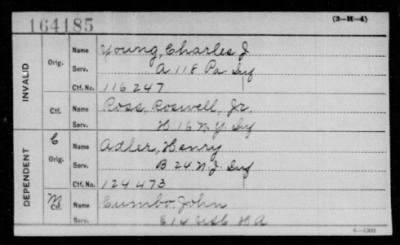 164185 (3-H-4)
INVALID
Orig. Name Young, Charles J.
Serv. A 118 Pa Inf
Ctf. No. 116247
Ctf. Name Ross, Roswell, Jr.
Serv. H 16 N.Y. Inf
DEPENDENT
C Orig. Name Adler, Henry
Serv. B 24 N J Inf
Ctf. No. 124473
M Ctf. Name Cumbo, John
Serv. E 14 US C H A